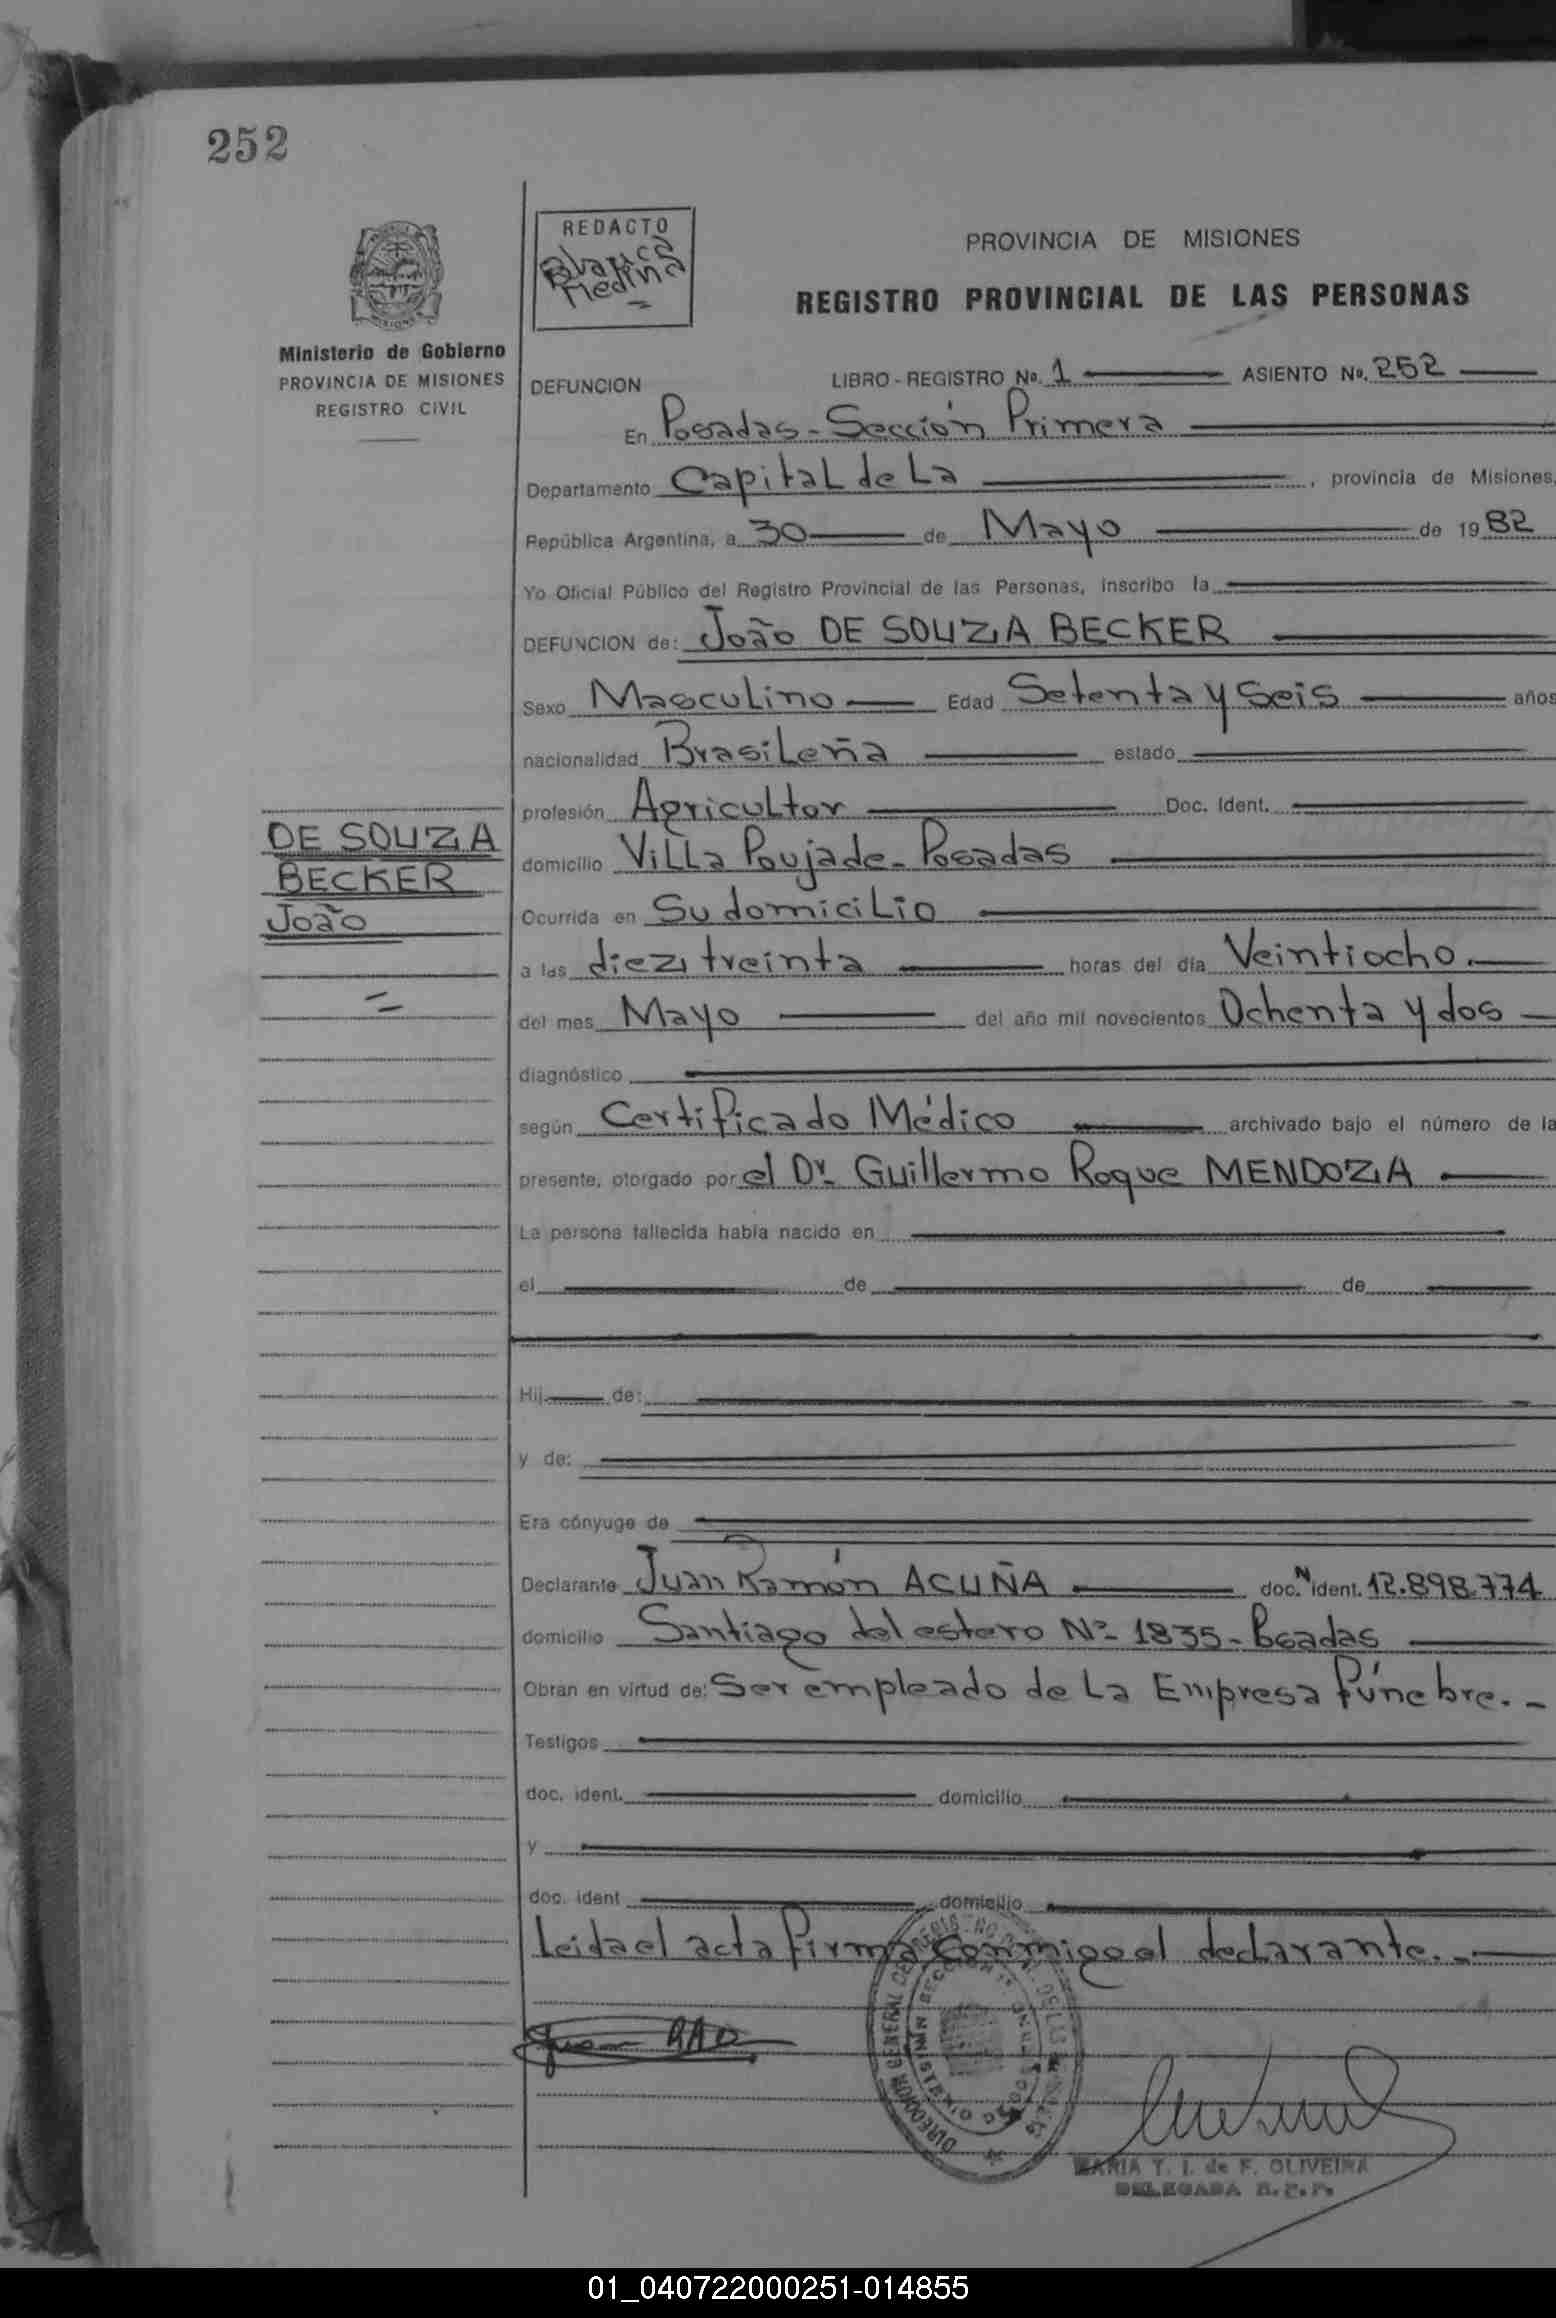 252
REDACTO
Blanca
Medina
PROVINCIA DE MISIONES
REGISTRO PROVINCIAL DE LAS PERSONAS
MISIONES
Ministerio de Gobierno
PROVINCIA DE MISIONES
REGISTRO CIVIL
DEFUNCION LIBRO - REGISTRO No. 1 ASIENTO No. 252
En Posadas - Sección Primera
Departamento Capital de La, provincia de Misiones,
República Argentina, a 30 de Mayo de 1982
Yo Oficial Público del Registro Provincial de las Personas, inscribo la
DEFUNCION de: João DE SOUZA BECKER
Sexo Masculino Edad Setenta y Seis años
nacionalidad Brasileña estado
profesión Agricultor Doc. Ident.
DE SOUZA
BECKER
João
domicilio Villa Poujade - Posadas
Ocurrida en Su domicilio
a las diez treinta horas del día Veintiocho.
del mes Mayo del año mil novecientos Ochenta y dos
diagnóstico
según Certificado Médico archivado bajo el número de la
presente, otorgado por el Dr. Guillermo Roque MENDOZA
La persona fallecida había nacido en
el de de
Hij de:
y de:
Era cónyuge de
Declarante Juan Ramón ACUÑA doc. N ident. 12.898.774
domicilio Santiago del estero Nº 1835 - Posadas
Obran en virtud de: Ser empleado de La Empresa fúnebre. -
Testigos
doc. ident. domicilio
y
doc. ident domicilio
Leida el acta firma conmigo el declarante. -
MARIA Y. I. de F. OLIVEIRA
DELEGADA R. P. P.
01_040722000251-014855